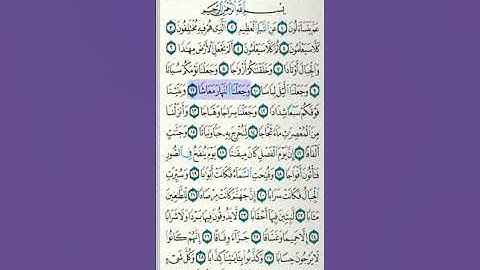 بِسْمِ ٱللَّهِ ٱلرَّحْمَٰنِ ٱلرَّحِيمِ
عَمَّ يَتَسَآءَلُونَ ١ عَنِ ٱلنَّبَإِ ٱلْعَظِيمِ ٢ ٱلَّذِي هُمْ فِيهِ مُخْتَلِفُونَ ٣
كَلَّا سَيَعْلَمُونَ ٤ ثُمَّ كَلَّا سَيَعْلَمُونَ ٥ أَلَمْ نَجْعَلِ ٱلْأَرْضَ مِهَٰدًا ٦
وَٱلْجِبَالَ أَوْتَادًا ٧ وَخَلَقْنَٰكُمْ أَزْوَٰجًا ٨ وَجَعَلْنَا نَوْمَكُمْ سُبَاتًا
٩ وَجَعَلْنَا ٱلَّيْلَ لِبَاسًا ١٠ وَجَعَلْنَا ٱلنَّهَارَ مَعَاشًا ١١ وَبَنَيْنَا
فَوْقَكُمْ سَبْعًا شِدَادًا ١٢ وَجَعَلْنَا سِرَاجًا وَهَّاجًا ١٣ وَأَنزَلْنَا
مِنَ ٱلْمُعْصِرَٰتِ مَآءً ثَجَّاجًا ١٤ لِّنُخْرِجَ بِهِۦ حَبًّا وَنَبَاتًا ١٥ وَجَنَّٰتٍ
أَلْفَافًا ١٦ إِنَّ يَوْمَ ٱلْفَصْلِ كَانَ مِيقَٰتًا ١٧ يَوْمَ يُنفَخُ فِي ٱلصُّورِ
فَتَأْتُونَ أَفْوَاجًا ١٨ وَفُتِحَتِ ٱلسَّمَآءُ فَكَانَتْ أَبْوَٰبًا ١٩ وَسُيِّرَتِ
ٱلْجِبَالُ فَكَانَتْ سَرَابًا ٢٠ إِنَّ جَهَنَّمَ كَانَتْ مِرْصَادًا ٢١ لِّلطَّٰغِينَ
مَـَٔابًا ٢٢ لَّٰبِثِينَ فِيهَآ أَحْقَابًا ٢٣ لَّا يَذُوقُونَ فِيهَا بَرْدًا وَلَا شَرَابًا
٢٤ إِلَّا حَمِيمًا وَغَسَّاقًا ٢٥ جَزَآءً وِفَاقًا ٢٦ إِنَّهُمْ كَانُوا۟
لَا يَرْجُونَ حِسَابًا ٢٧ وَكَذَّبُوا۟ بِـَٔايَٰتِنَا كِذَّابًا ٢٨ وَكُلَّ شَيْءٍ